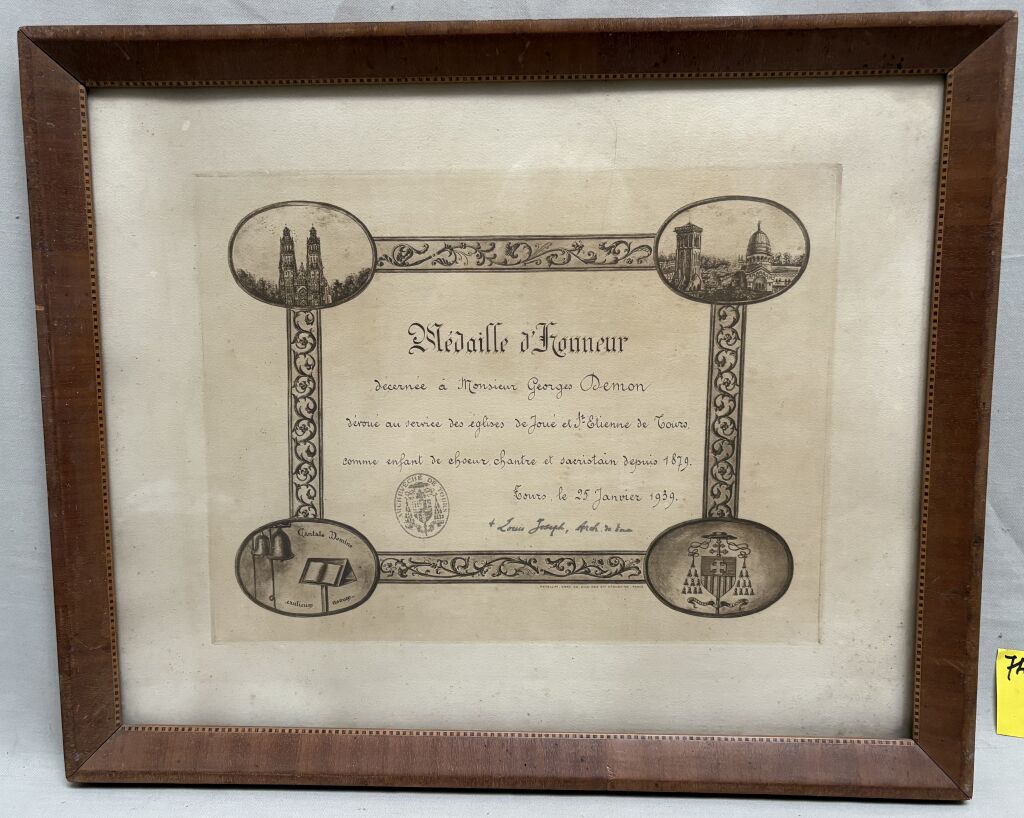 Médaille d'Honneur
décernée à Monsieur Georges Demon
dévoué au service des églises de Joué et St Etienne de Tours
comme enfant de choeur chantre et sacristain depuis 1879.
Tours, le 25 Janvier 1939.
ARCHEVÊCHÉ DE TOURS
+ Louis Joseph, Arch. de Tours
Cantate Domino
canticum novum
74